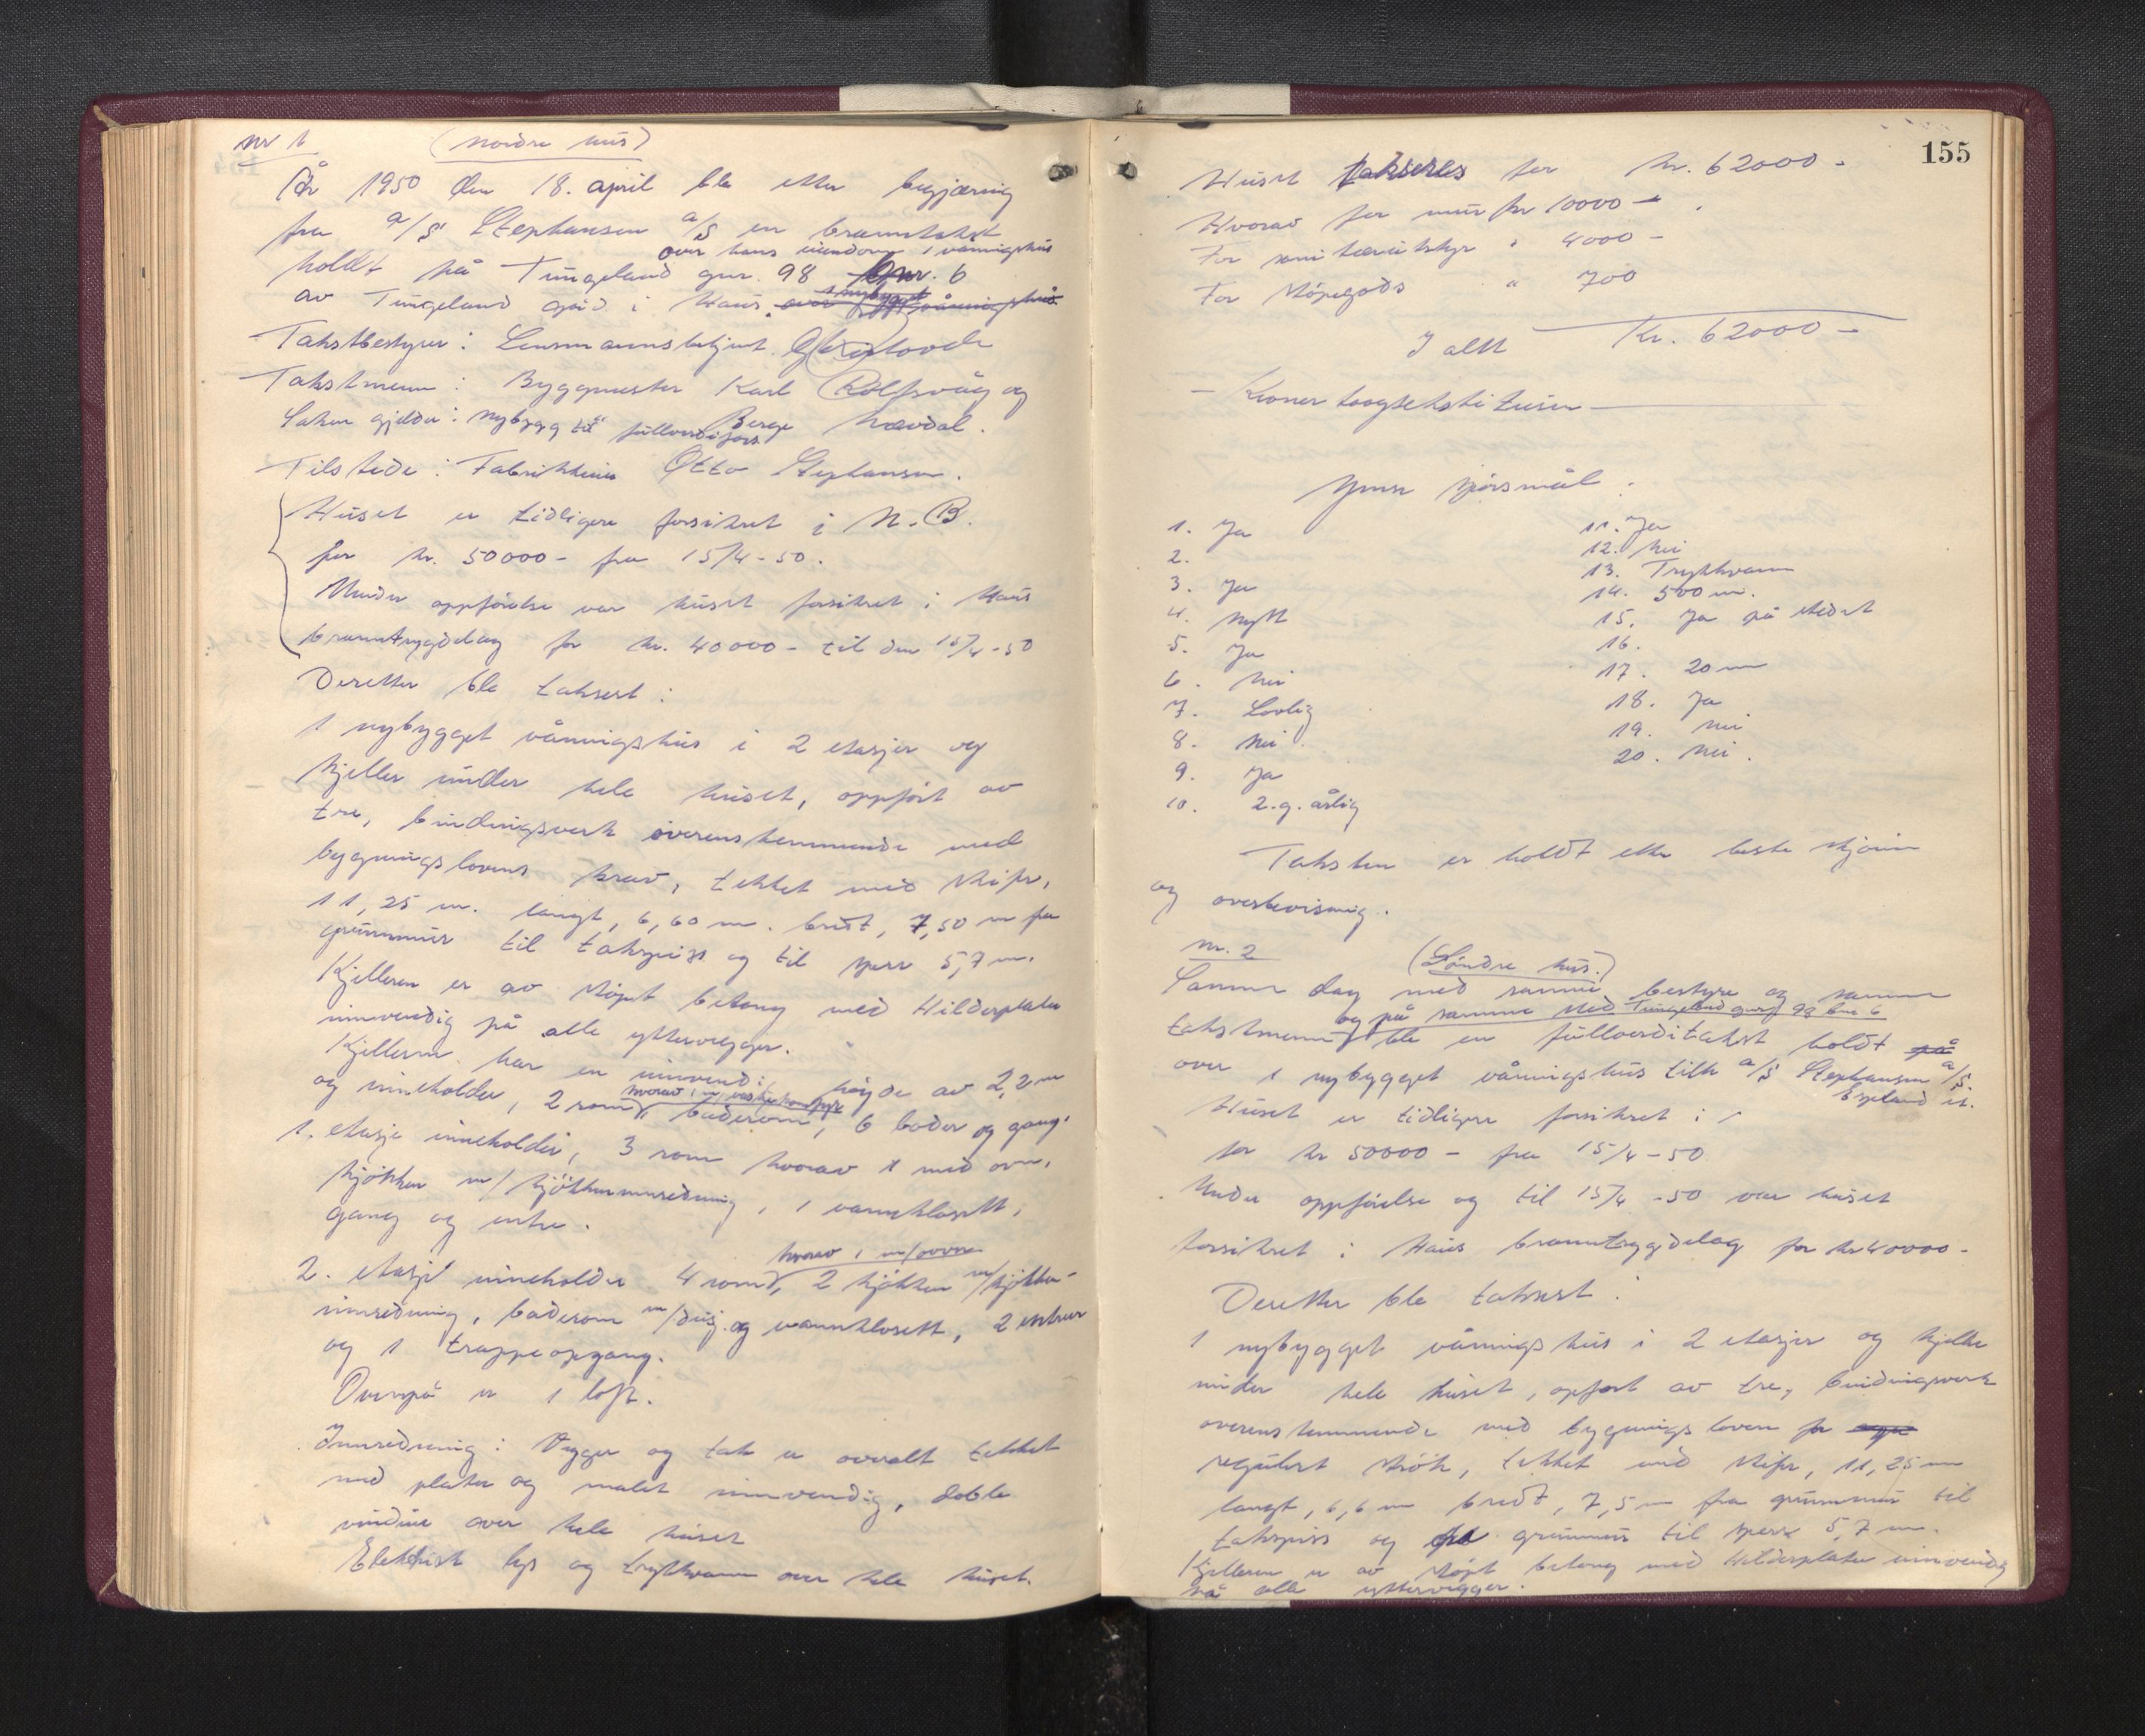 nr 1 (nordre hus)
År 1950 den 18. april ble etter begjæring
fra a/s Stephansen a/s en branntakst
over hans eiendom 1 våningshus
holdt på Tungeland gnr. 98 bnr. 6
av Tungeland gård i Haus. over 1 nybygget våningshus
Takstbestyrer: Lensmannsbetjent
Takstmenn: Byggmester Karl Rolfsvåg og
Berge Nævdal.
Saken gjelder: nybygg til fullverdifors.
Tilstede: Fabrikkeier Otto Stephansen.
Huset er tidligere forsikret i N.B.
for kr. 50000- fra 15/4-50.
Under oppførelse var huset forsikret i Haus
branntrygdelag for kr. 40000- til den 15/4-50
Deretter ble taksert:
1 nybygget våningshus i 2 etasjer og
kjeller under hele huset, oppført av
tre, bindingsverk overensstemmende med
bygningslovens krav, tekket med skifer,
11,25 m. langt, 6,60 m. bredt, 7,50 m fra
grunnmur til takspiss og til sperr 5,7 m.
Kjelleren er av støpt betong med Wilderplater
innvendig på alle yttervegger.
Kjelleren har en innvendig høyde av 2,2 m
og inneholder, 2 rom, hvorav 1 m/ vaskekomfyr baderom, 6 boder og gang.
1. etasje inneholder, 3 rom hvorav 1 med ovn,
kjøkken m/ kjøkkeninnredning, 1 vannklosett,
gang og entre.
hvorav 1 m/ovn
2. etasje inneholder 4 rom, 2 kjøkken m/kjøkken-
innredning, baderom m/dusj og vannklosett, 2 entreer
og 1 trappeopgang.
Ovenpå er 1 loft.
Innredning: Vegger og tak er overalt tekket
med plater og malet innvendig, doble
vinduer over hele huset
Elektrisk lys og trykkvann over hele huset.
155
Huset takseres for kr. 62000-
Hvorav for mur kr 10000-
For sanitærutstyr " 4000-
For støpegods " 700
I alt Kr. 62000-
- Kroner toogsekstitusen -
Ymse spørsmål.
1. Ja
2.
3. Ja
4. Nytt
5. Ja
6. Nei
7. Lovlig
8. Nei.
9. Ja
10. 2.g. årlig
11. Ja
12. Nei
13. Trykkvann
14. 500 m.
15. Ja på stedet
16.
17. 20 m
18. Ja
19. Nei
20. Nei.
Taksten er holdt etter beste skjønn
og overbevisning.
nr. 2 (Søndre hus.)
Samme dag med samme bestyrer og samme
og på samme sted Tungeland gnr 98 bnr 6
takstmenn ble en fullverditakst holdt på
over 1 nybygget våningshus tilh a/s Stephansen a/s.
Espeland st.
Huset er tidligere forsikret i
for kr 50000- fra 15/4-50
Under oppførelse og til 15/4-50 var huset
forsikret i Haus branntrygdelag for kr 40000-
Deretter ble taksert:
1 nybygget våningshus i 2 etasjer og kjeller
under hele huset, opført av tre, bindingsverk
overensstemmende med bygningsloven for
regulert strøk, tekket med skifer, 11,25 m
langt, 6,6 m bredt, 7,5 m fra grunnmur til
takspiss og fra grunnmur til sperr 5,7 m.
Kjelleren er av støpt betong med Wilderplater innvendig
på alle yttervegger.